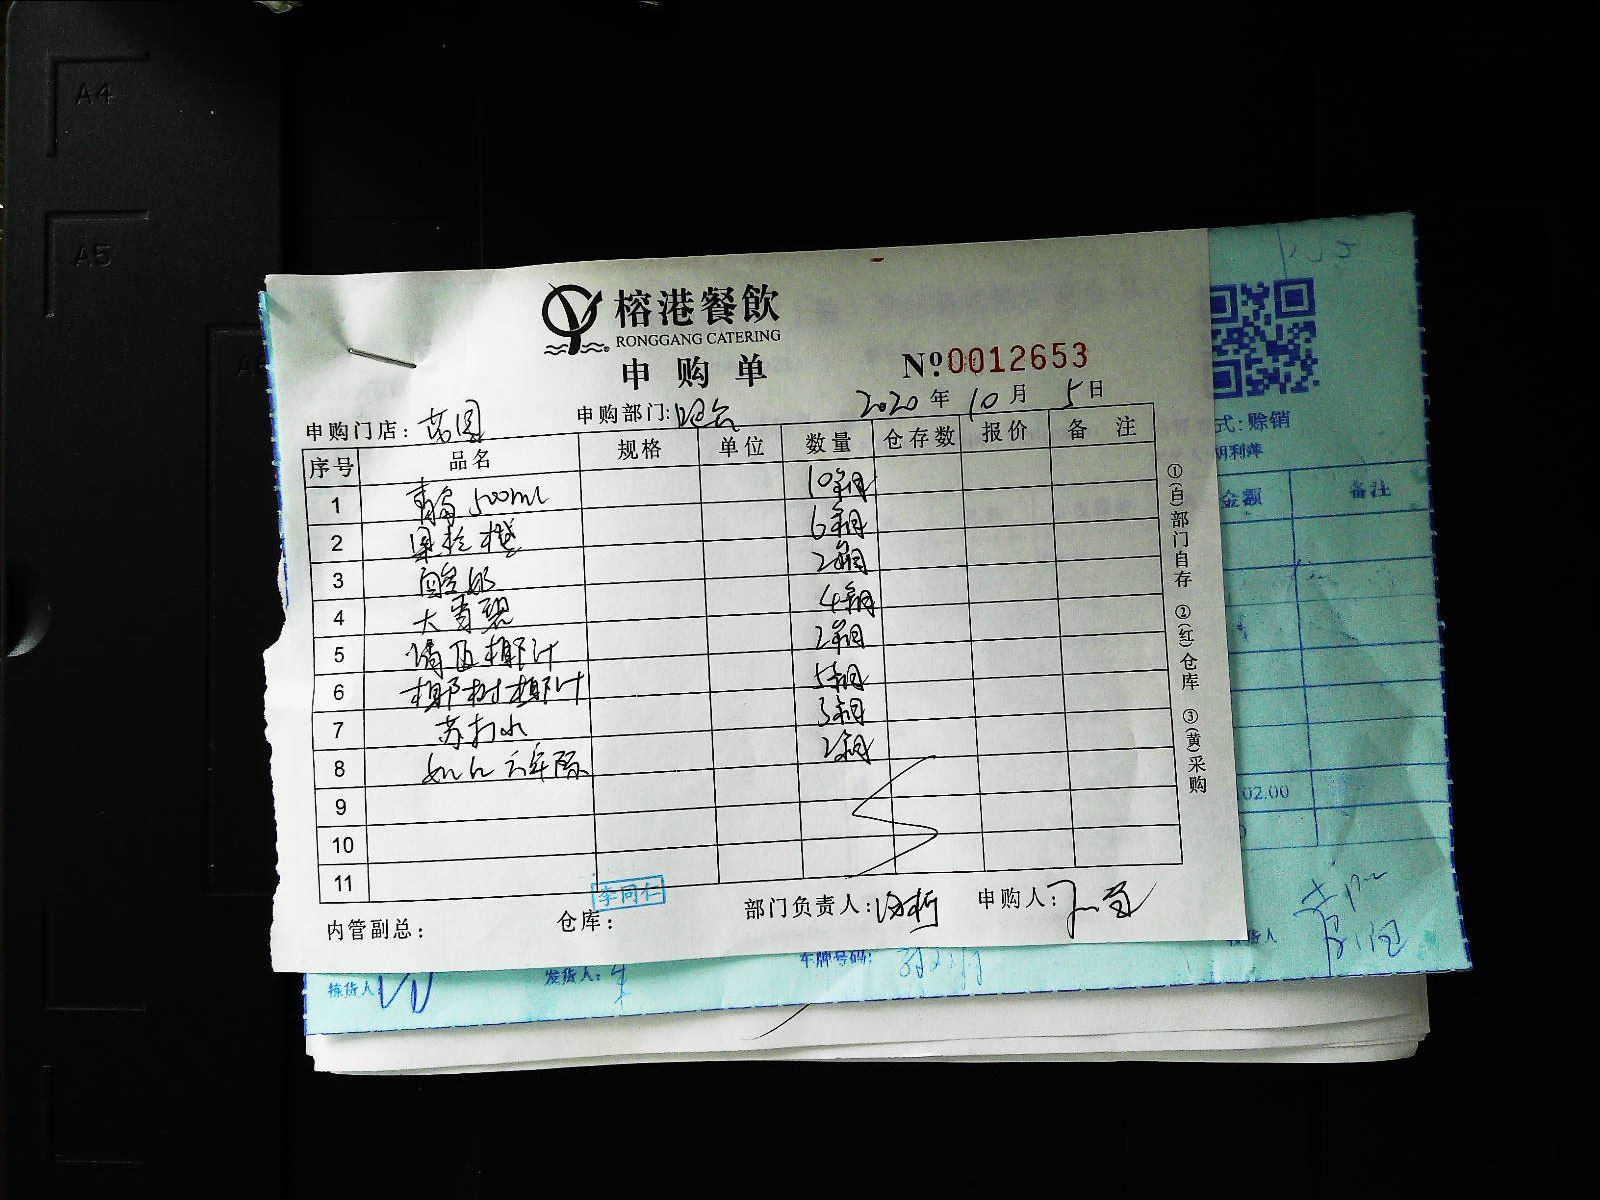 A4
A5
榕港餐飲
RONGGANG CATERING
申购单
№0012653
申购门店: 茗园 申购部门: 吧台 2020年10月5日
序号 品名 规格 单位 数量 仓存数 报价 备注
1 青岛500ml 10箱
2 果粒橙 6箱
3 酸奶 2箱
4 大雪碧 4箱
5 椰汁 2箱
6 椰树椰汁 5箱
7 苏打水 3箱
8 2箱
9
10
11
内管副总: 仓库: 李同仁 部门负责人: 申购人:
①(白)部门自存 ②(红)仓库 ③(黄)采购
式: 赊销
胡利萍
金额 备注
02.00
拣货人 发货人: 车牌号码: 货人